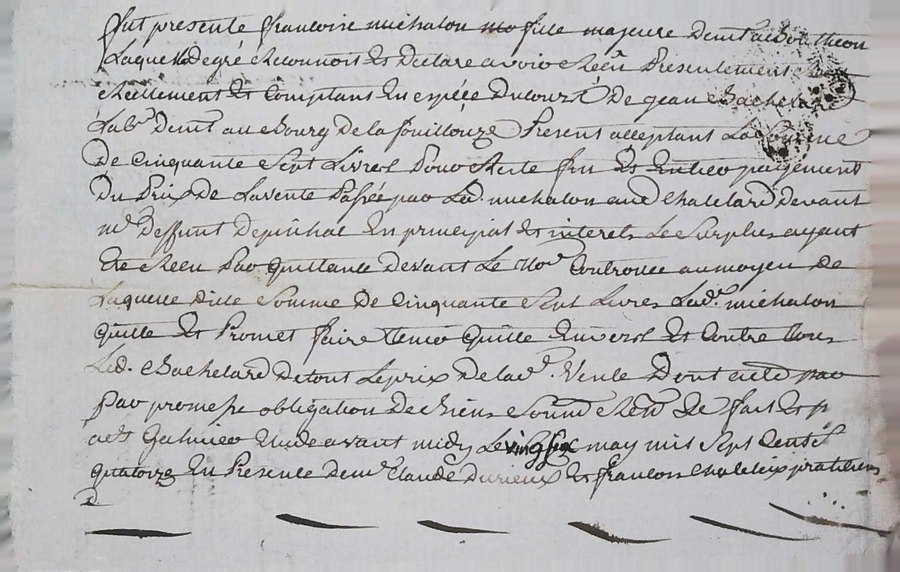 fut presente francoise michalon fille majeure demt a Boutheon
Laquelle degré Reconnoit Et Declare avoir Receu Presentement
Reellement Et Comptant En espece du cours de jean Bachelard
Labr demt au Bourg de la fouillouze Present acceptant La somme
De Cinquante Sept Livres Pour Reste fin Et Entier payement
Du Prix De La vente Passée par Lad. michalon aud Bachelard devant
me deffunt depinhac En principal Et interets Le Surplus ayant
Ete Receu Par quittance devant Le Nore au moyen de
Laquelle ditte Somme De Cinquante Sept Livres Lade michalon
Quitte Et Promet faire tenir Quitte Envers Et Contre tous
Led. Bachelard De tout Le prix De lade. Vente Dont acte par
Par promesse obligation De Biens Soum Ren Et
Galmier Etude avant midy Le vingt six may mil Sept Cents
quatorze En Presence de me Claude durieux Et francois praticiens